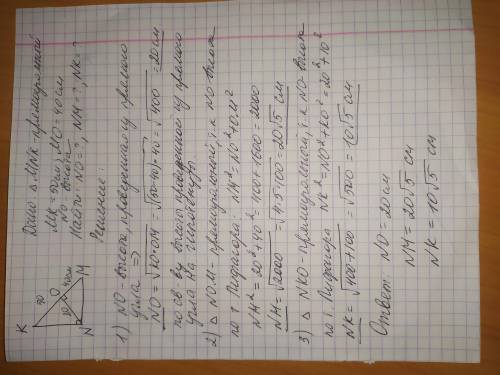 Дано: △ MNK - прямоугольный
MK = 50 см; MO = 40 см
NO высота
Найти: NO = ?, NM = ?, NK = ?
K
10
O
40 см
M
N
Решение:
1) NO - высота, проведенная из прямого
угла =>
NO = √KO·OM = √(50-40)·40 = √400 = 20 см
по св. ву высоты проведенной из прямого
угла на гипотенузу
2) △ NOM - прямоугольный, т.к NO - высота
по т. Пифагора: NM² = NO² + OM²
NM² = 20² + 40² = 400 + 1600 = 2000
NM = √2000 = √4·5·100 = 20√5 см
3) △ NKO - прямоугольный, т.к NO - высота
по т. Пифагора NK² = NO² + KO² = 20² + 10²
NK = √400+100 = √500 = 10√5 см
Ответ: NO = 20 см
NM = 20√5 см
NK = 10√5 см